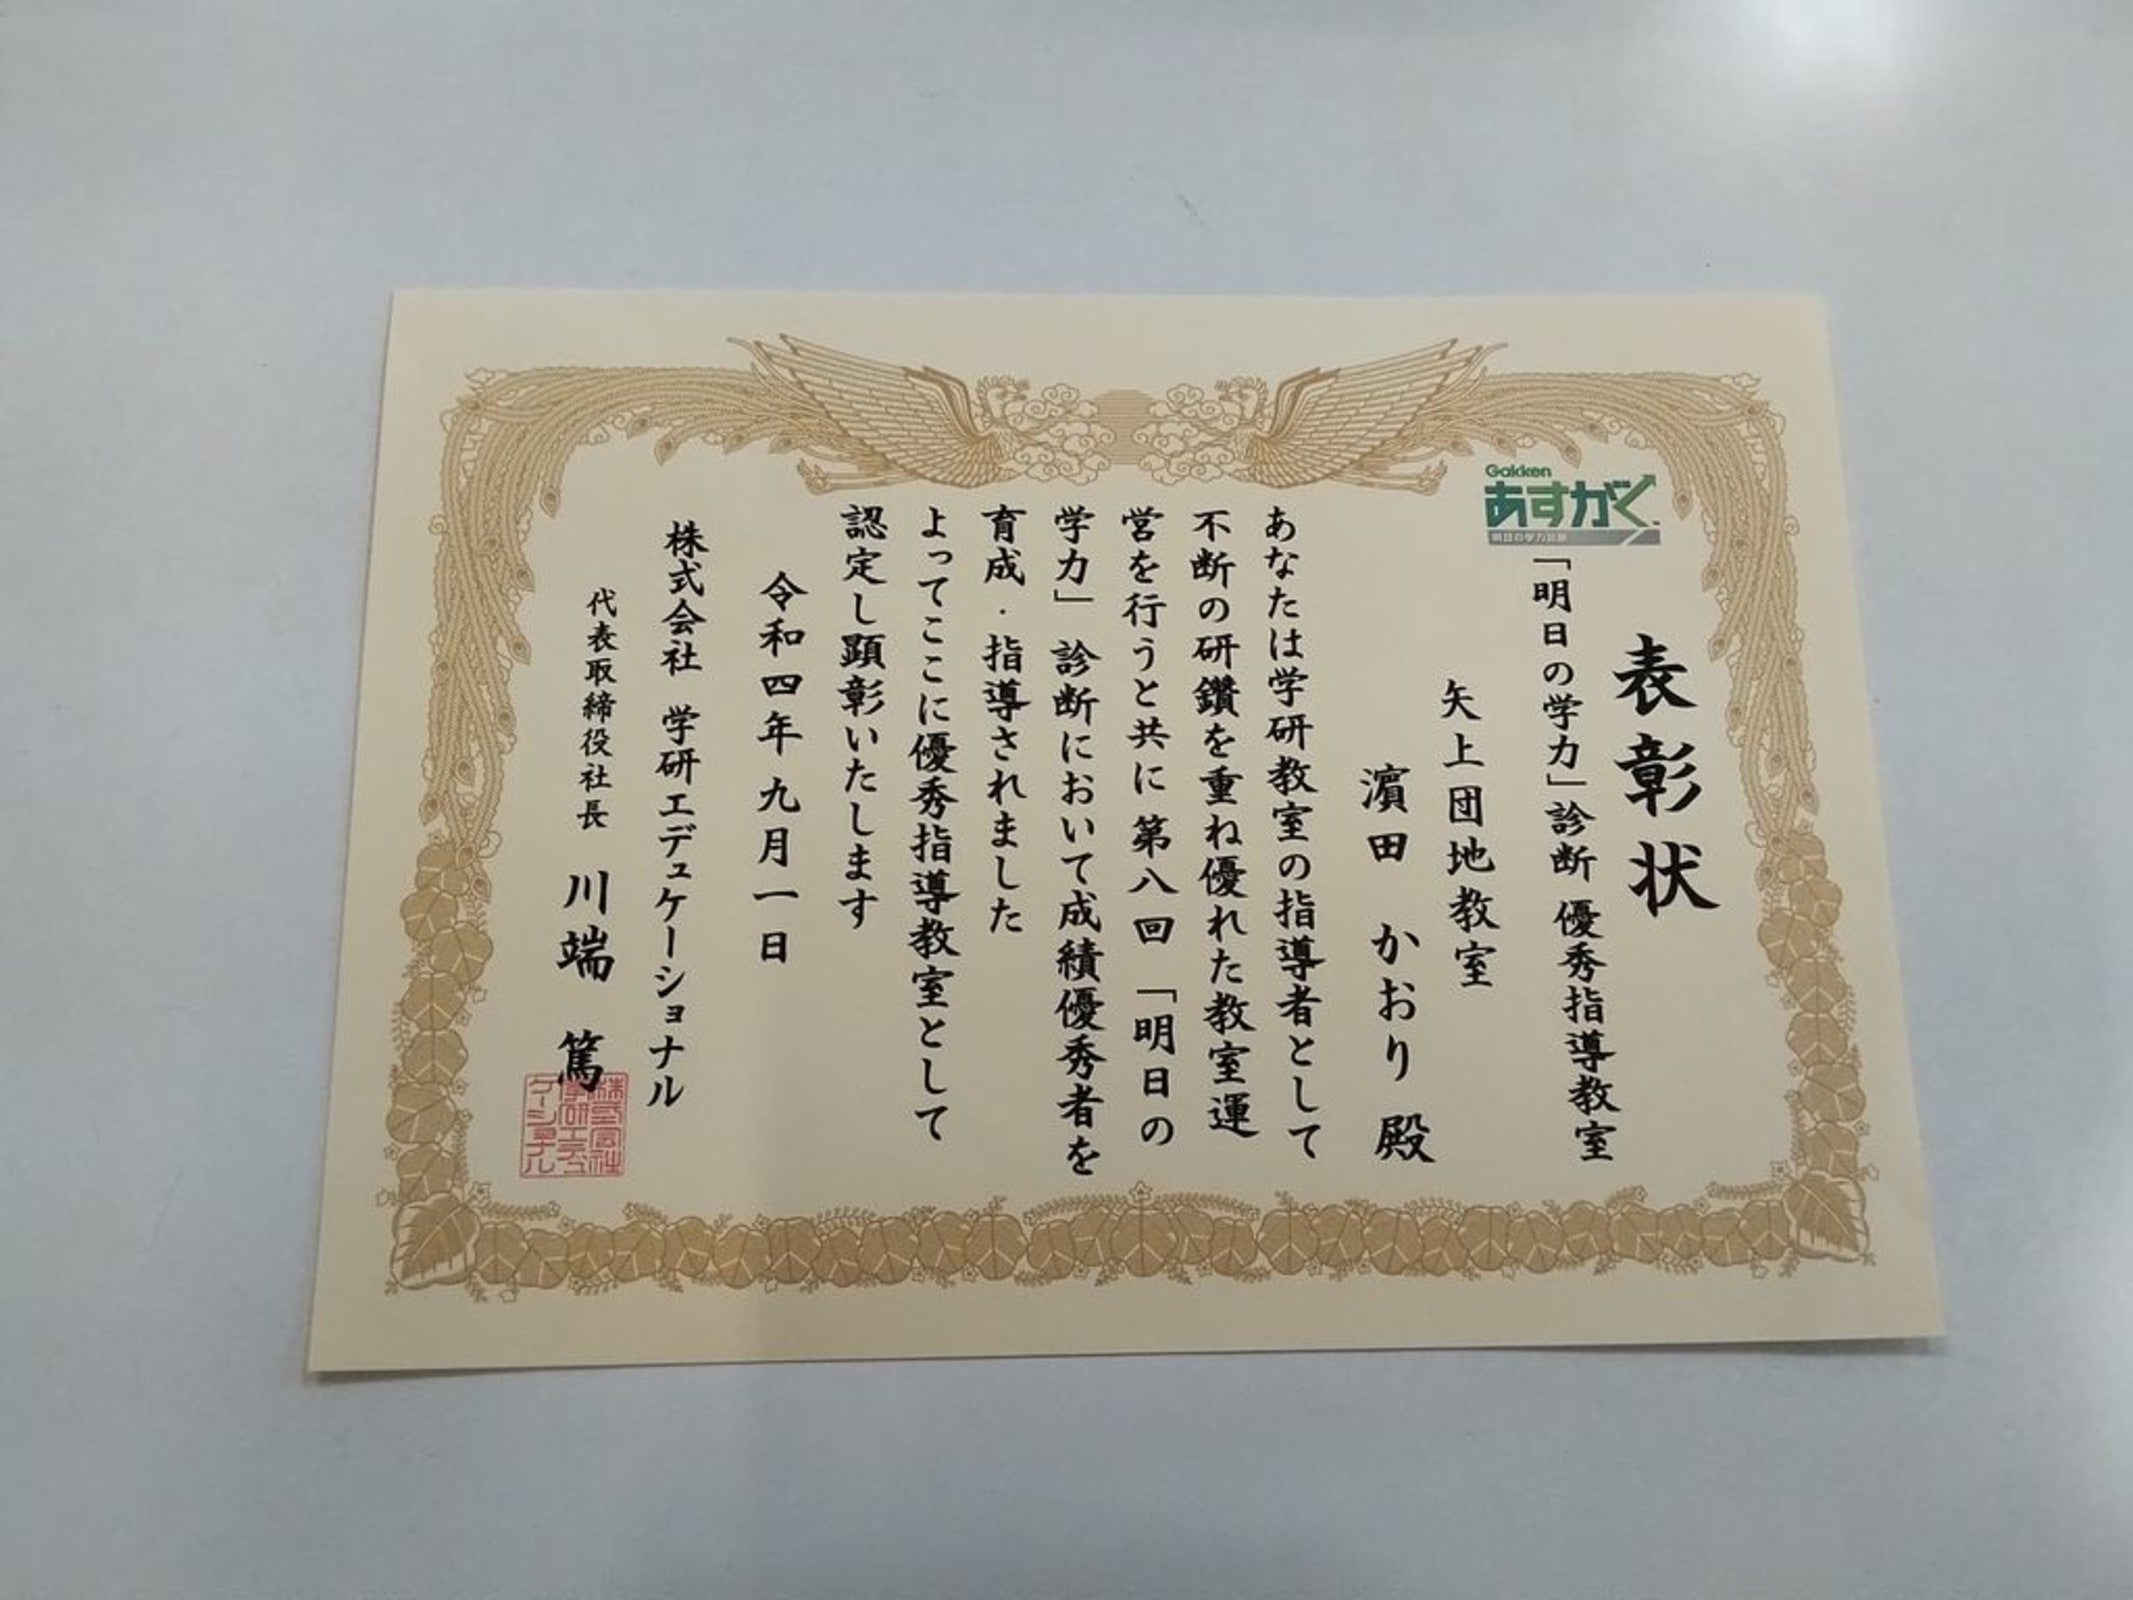 Gakken
あすがく
明日の学力診断
表彰状
「明日の学力」診断 優秀指導教室
矢上団地教室
濵田 かおり 殿
あなたは学研教室の指導者として
不断の研鑽を重ね優れた教室運
営を行うと共に 第八回 「明日の
学力」 診断において成績優秀者を
育成・指導されました
よってここに優秀指導教室として
認定し顕彰いたします
令和四年九月一日
株式会社 学研エデュケーショナル
代表取締役社長 川端 篤
株式会社
学研エデュ
ケーショナル